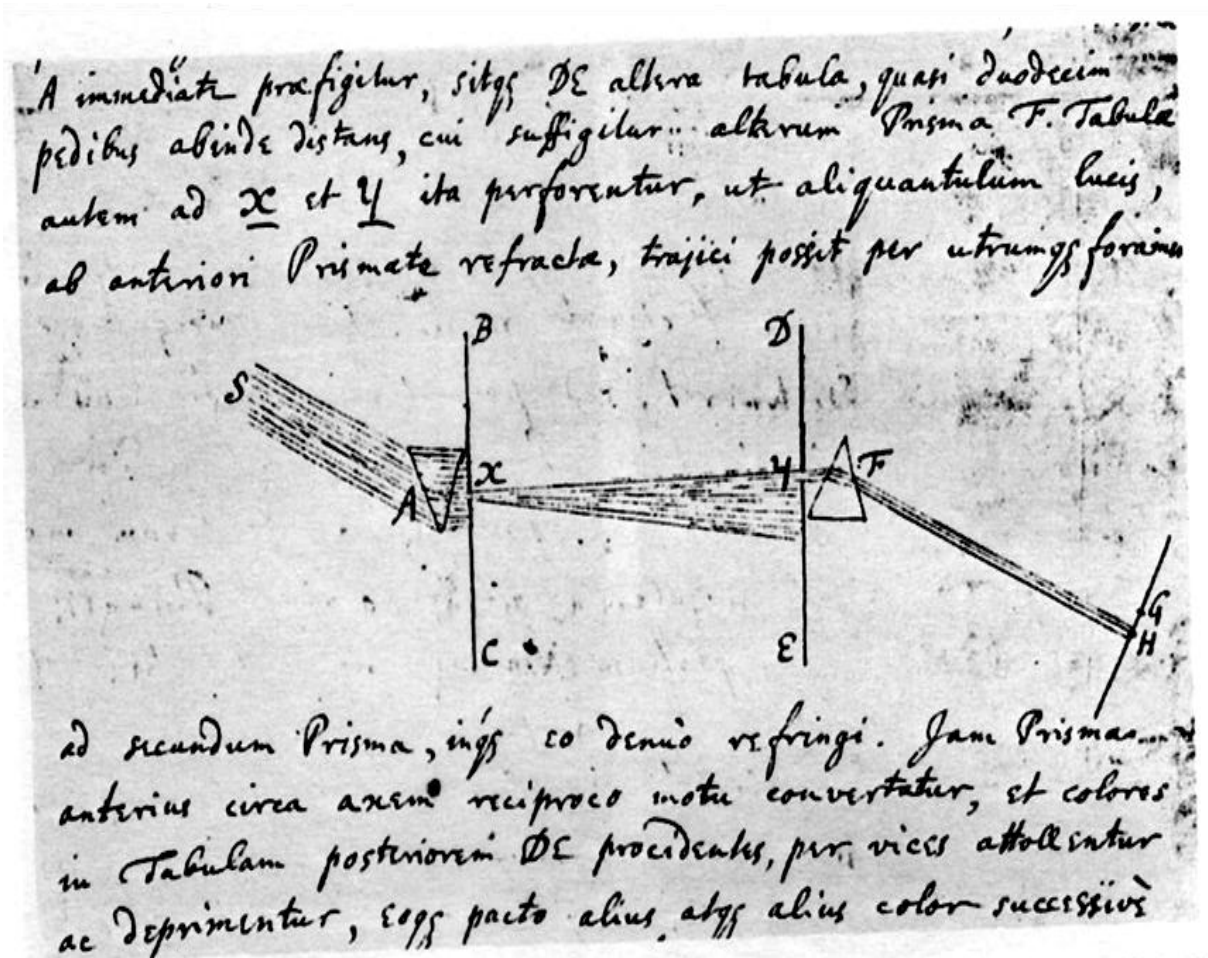 A immediatè præfigitur, sitqʒ DE altera tabula, quasi duodecim
pedibus abinde distans, cui suffigitur alterum Prisma F. Tabulæ
autem ad x et y ita perforentur, ut aliquantulum lucis,
ab anteriori Prismate refractæ, trajici possit per utrumqʒ foramen
B
D
S
x
y
F
A
G
H
C
E
ad secundum Prisma, inqʒ eo denuò refringi. Jam Prisma
anterius circa axem reciproco motu convertatur, et colores
in Tabulam posteriorem DE procidentes, per vices attollentur
ac deprimentur, eoqʒ pacto alius atqʒ alius color successivè